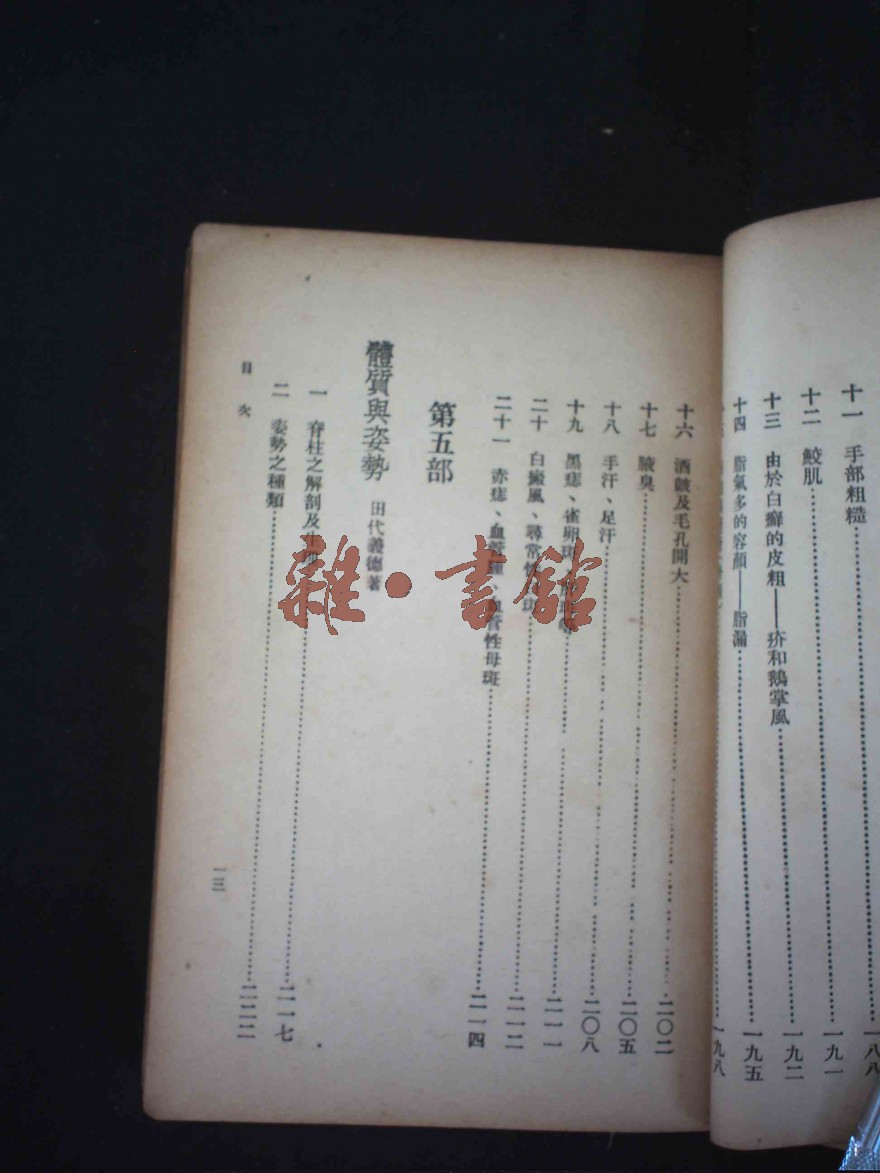 十一 手部粗糙 一八八
十二 鮫肌 一九一
十三 由於白癬的皮粗——疥和鵝掌風 一九二
十四 脂氣多的容顏——脂漏 一九五
一九八
十六 酒皶及毛孔開大 二〇二
十七 腋臭 二〇五
十八 手汗、足汗 二〇八
十九 黑痣、雀卵斑、 二一一
二十 白癜風、尋常性 斑 二一二
二十一 赤痣、血管 、血管性母斑 二一四
第五部
體質與姿勢 田代義德著
一 脊柱之解剖及生 二一七
二 姿勢之種類 二二二
目次
一三
雜·書館